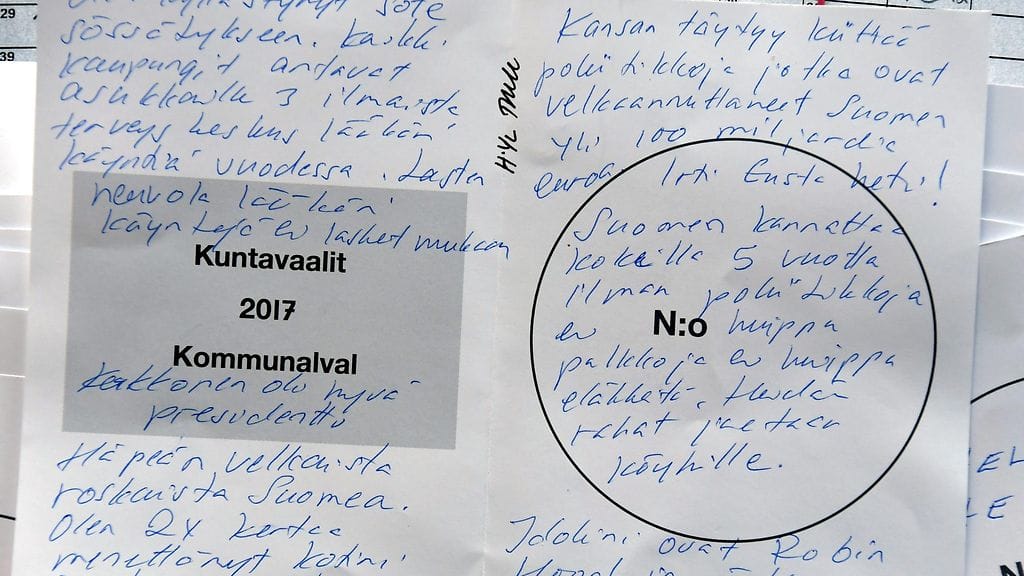 29
39
sote
sössötykseen. Kaikki
kaupungit antavat
asukkaille 3 ilmaista
terveys keskus lääkäri
käyndiä vuodessa. Lasten
neuvola lääkäri
käyntejä ei lasket mukaan
Kuntavaalit
2017
Kommunalval
Kekkonen oli hyvä
presidentti
Häpeän velkaista
roskaista Suomea.
Olen 2X kertaa
menettänyt kotini
Kansan täytyy kiittää
poliitikkoja jotka ovat
velkaannuttaneet Suomen
yli 100 miljardia
euroa. Irti Eusta heti!
Suomen kannattaa
kokeilla 5 vuotta
ilman poliitikkoja
ei N:o huippu
palkkoja ei huippu
eläkkeitä. Heidän
rahat jaetaan
köyhille.
Idolini ovat Robin
EL
LE